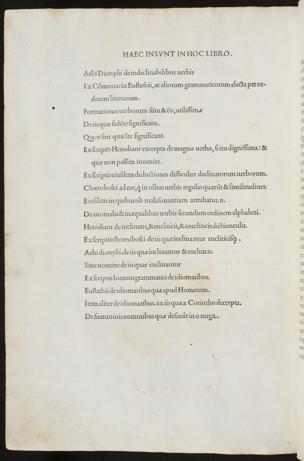 HAEC INSVNT IN HOC LIBRO.
Aelii Dionysii de indeclinabilibus uerbis
Ex Cõmentariis Eustathii, ac aliorum grammaticorum electa per or-
dinem literarum.
Formationes uerborum sum & eo, utilissimæ
De iis quæ sedere significant.
Quot sint quæ ire significant.
Ex scriptis Herodiani excerpta de magno uerbo, scitu dignissima: &
quæ non passim inuenies.
Ex scriptis eiusdem deductiones difficulter declinatorum uerborum.
Chœrobosci ad eos, q in oibus uerbis regulas quærũt & similitudines.
Eiusdem in quibus ob malesonantiam attrahatur.n.
De anomalis & inæqualibus uerbis secundum ordinem alphabeti.
Herodiani de inclinatis, & encliticis, & coencliticis dictiunculis.
Ex scriptis chœrobosci de iis quæ inclinantur encliticisq.
Aelii dionysii de iis quæ inclinantur & encleticis.
Sine nomine de iis quæ inclinantur
Ex scriptis Ioannis grammatici de idiomatibus.
Eustathii de idiomatibus quæ apud Homerum.
Item aliter de idiomatibus. ex iis quæ a Corintho decerpta.
De fœmininis nominibus quæ desinũt in o mega.